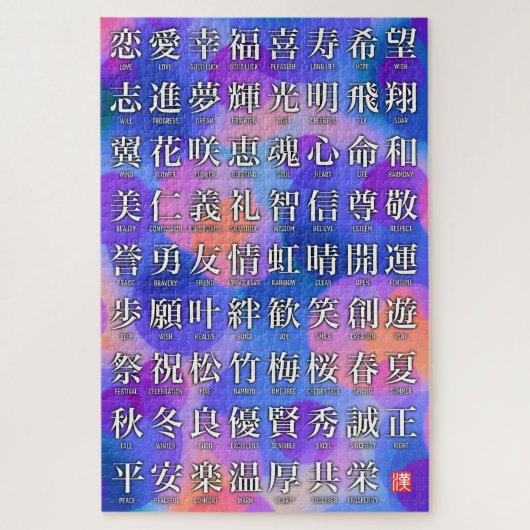 恋 愛 幸 福 喜 寿 希 望
LOVE LOVE GOOD LUCK GOOD LUCK PLEASURE LONG LIFE HOPE WISH
志 進 夢 輝 光 明 飛 翔
WILL PROGRESS DREAM BRIGHTEN LIGHT CHEERFUL FLY SOAR
翼 花 咲 恵 魂 心 命 和
WING FLOWER FLOWER BLESSING SOUL HEART LIFE HARMONY
美 仁 義 礼 智 信 尊 敬
BEAUTY COMPASSION RIGHTEOUSNESS GRATITUDE WISDOM BELIEVE ESTEEM RESPECT
誉 勇 友 情 虹 晴 開 運
PRAISE BRAVERY FRIEND COMPASSIONATE RAINBOW CLEAR OPEN FORTUNE
歩 願 叶 絆 歓 笑 創 遊
STEP WISH REALIZE BOND JOY SMILE CREATION PLAY
祭 祝 松 竹 梅 桜 春 夏
FESTIVAL CELEBRATION PINE BAMBOO UME TREE CHERRY TREE SPRING SUMMER
秋 冬 良 優 賢 秀 誠 正
FALL WINTER GOOD EXCELLENT SENSIBLE EXCEL SINCERITY RIGHT
平 安 楽 温 厚 共 栄 漢
PEACE PEACEFUL COMFORT WARM HEARTY TOGETHER PROSPERITY